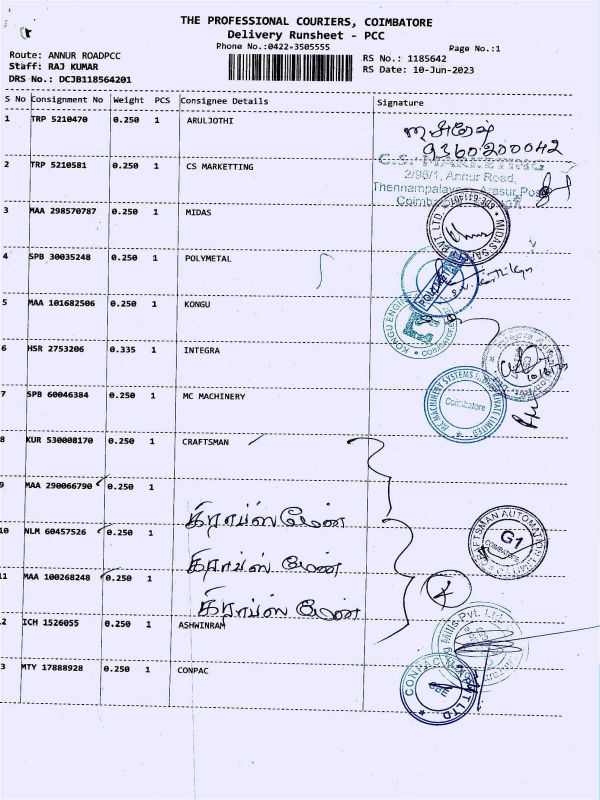 THE PROFESSIONAL COURIERS, COIMBATORE
Delivery Runsheet - PCC
Phone No.:0422-3505555
Page No.:1
Route: ANNUR ROADPCC
Staff: RAJ KUMAR
DRS No.: DCJB118564201
RS No.: 1185642
RS Date: 10-Jun-2023
S No Consignment No Weight PCS Consignee Details Signature
1 TRP 5210470 0.250 1 ARULJOTHI
9360200042
2 TRP 5210581 0.250 1 CS MARKETTING
C.S. MARKETING
2/96/1, Annur Road,
3 MAA 298570787 0.250 1 MIDAS
4 SPB 30035248 0.250 1 POLYMETAL
5 MAA 101682506 0.250 1 KONGU
6 HSR 2753206 0.335 1 INTEGRA
7 SPB 60046384 0.250 1 MC MACHINERY
Coimbatore
8 KUR 530008170 0.250 1 CRAFTSMAN
9 MAA 290066790 0.250 1
கிராப்ஸ் மேன்
10 NLM 60457526 0.250 1
G1
கிராப்ஸ் மேன்
11 MAA 100268248 0.250 1
கிராப்ஸ் மேன்
2 ICH 1526055 0.250 1 ASHWINRAM
3 MTY 17888928 0.250 1 CONPAC